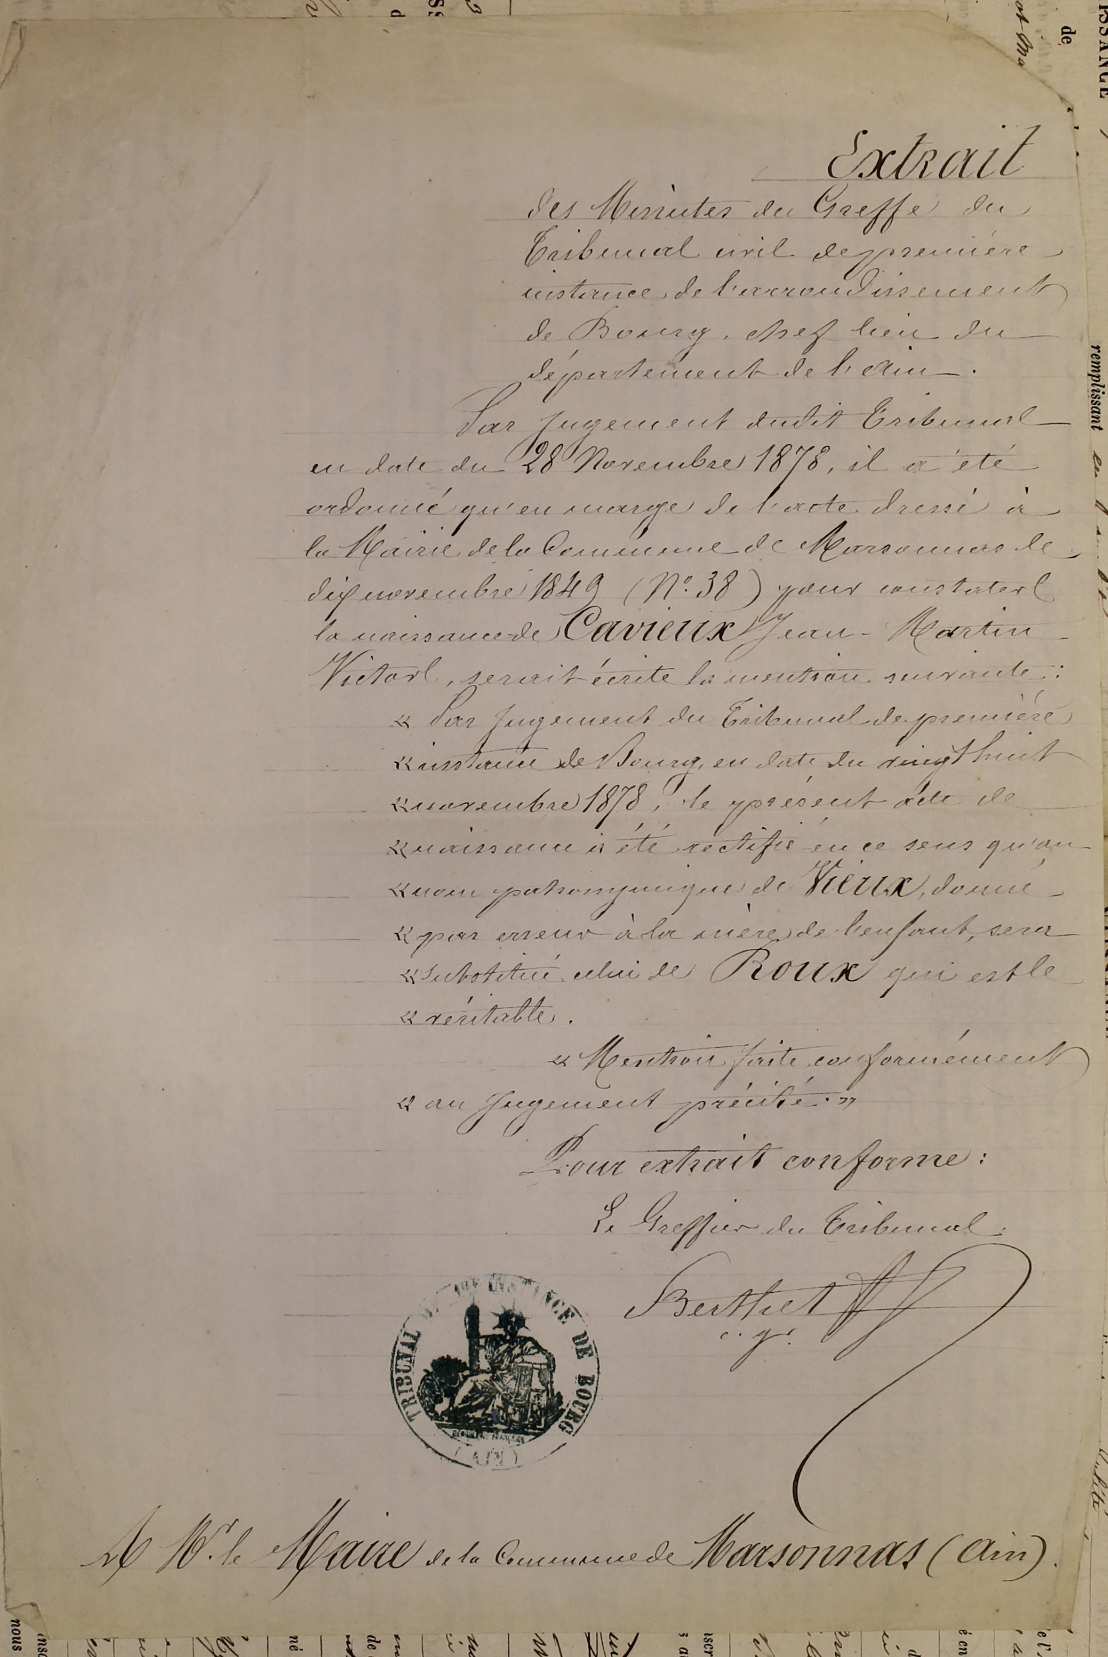 Extrait
des Minutes du Greffe du
Tribunal civil de première
instance de l'arrondissement
de Bourg, chef lieu du
département de l'Ain.
Par Jugement dudit Tribunal
en date du 28 Novembre 1878, il a été
ordonné qu'en marge de l'acte dressé à
la Mairie de la Commune de Marsonnas le
dix novembre 1849 (No. 38) pour constater
la naissance de Cavieux Jean-Martin
Victor, serait écrite la mention suivante:
« Par Jugement du Tribunal de première
« instance de Bourg, en date du vingt huit
« novembre 1878, le présent acte de
« naissance a été rectifié en ce sens qu'au
« nom patronymique de Vieux, donné
« par erreur à la mère de l'enfant, sera
« substitué celui de Roux qui est le
« véritable.
« Mention faite conformément
« au Jugement précité. »
Pour extrait conforme:
Le Greffier du Tribunal:
Berthet
c. g.
TRIBUNAL DE 1RE INSTANCE DE BOURG
(AIN)
A Mr. le Maire de la Commune de Marsonnas (Ain).
ISSANCE
de
remplissant
nous